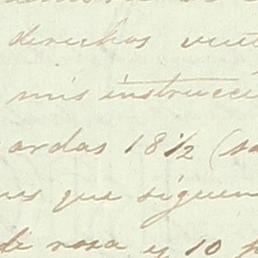 derechos
mis instrucci
ardas 18 1/2 (
que siguen
de rosa es 10